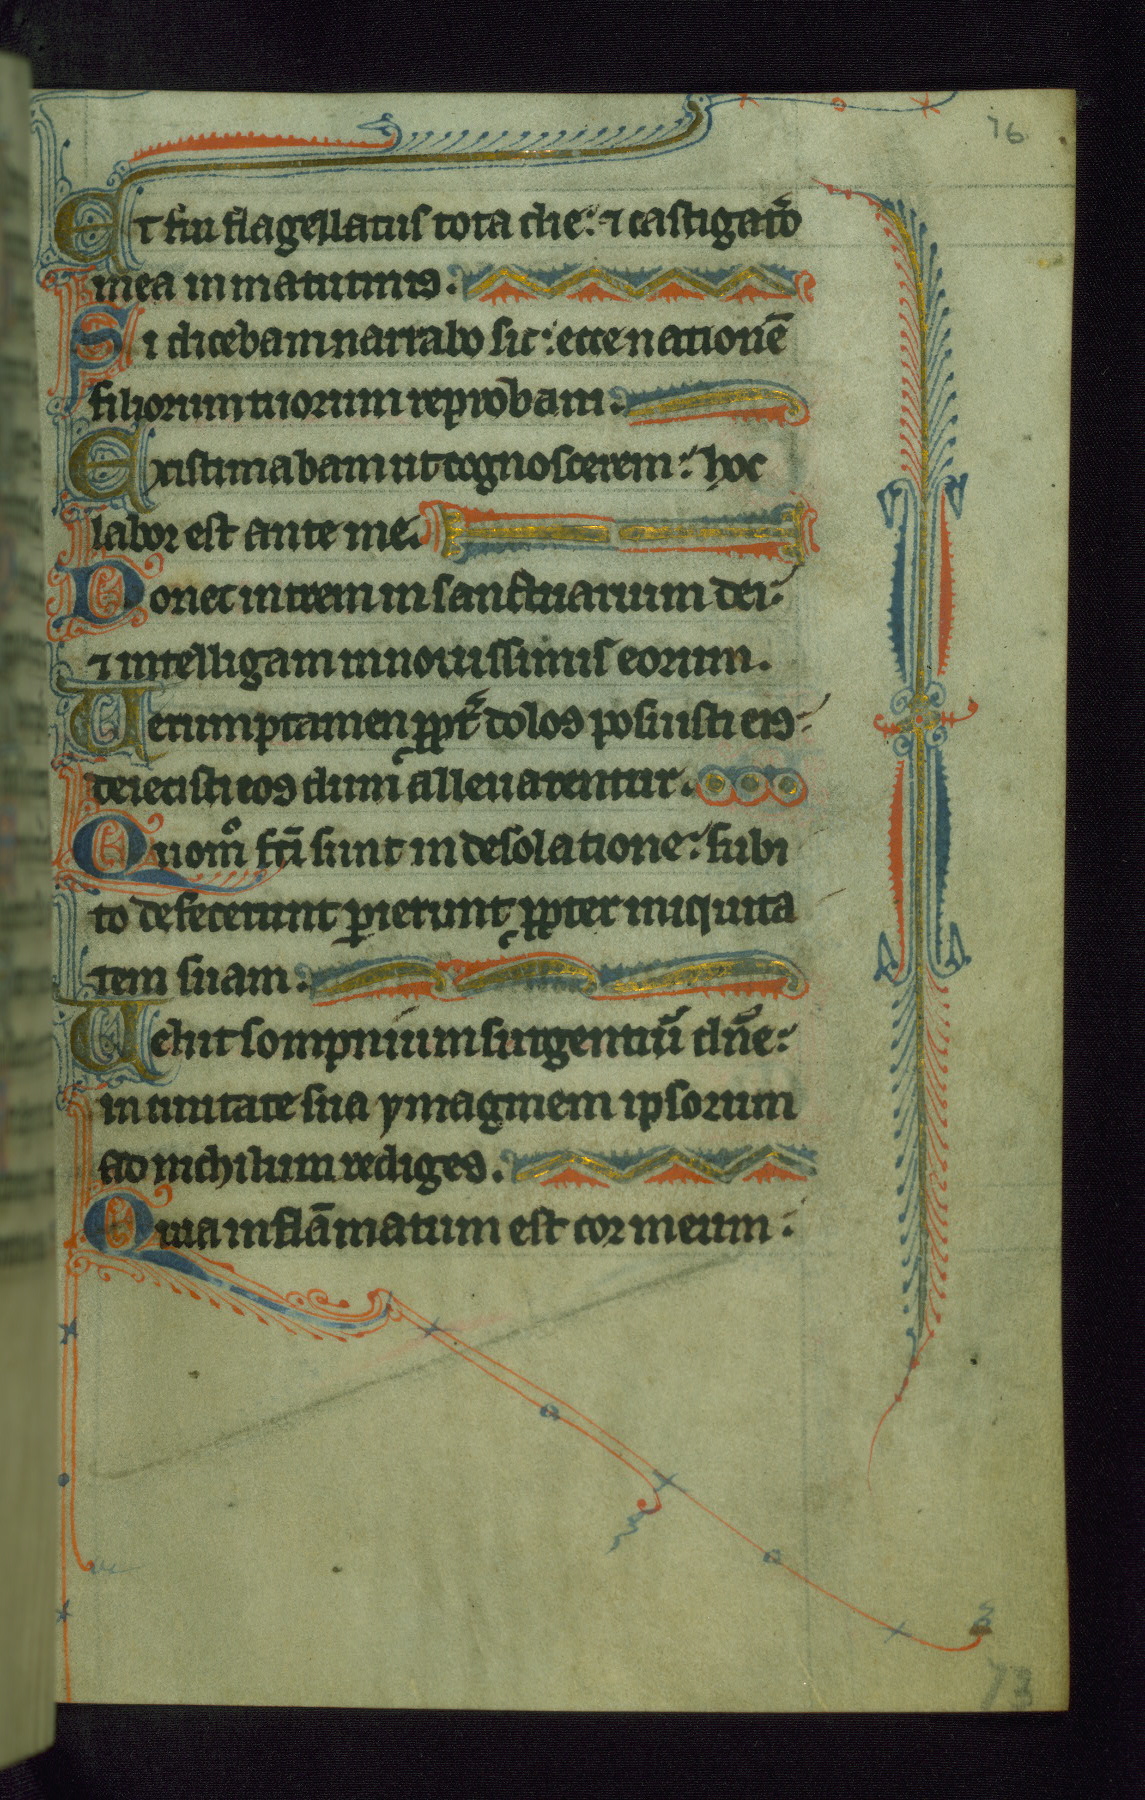 76
Et fui flagellatus tota die: ⁊ castigatō
mea in matutinis.
Si dicebam narrabo sic: ecce nationē
filiorum tuorum reprobam.
Existimabam ut cognoscerem: hoc
labor est ante me.
Donec intrem in sanctuarium dei:
⁊ intelligam in novissimis eorum.
Uerumptamen ꝓpt̄ dolos posuisti eis:
deiecisti eos dum allevarentur.
Quom̊ fc̄i sunt in desolatione: subi
to defecerunt ꝑierunt ꝓpter iniquita
tem suam.
Uelut sompnium surgentiū dn̄e:
in civitate sua ymaginem ipsorum
ad nichilum rediges.
Quia inflāmatum est cor meum:
73